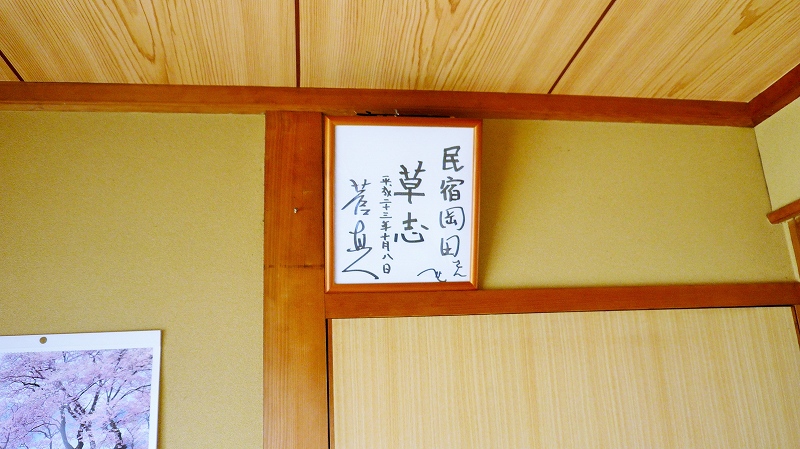 民宿岡田さんへ
草志
平成二十三年十月八日
菅直人